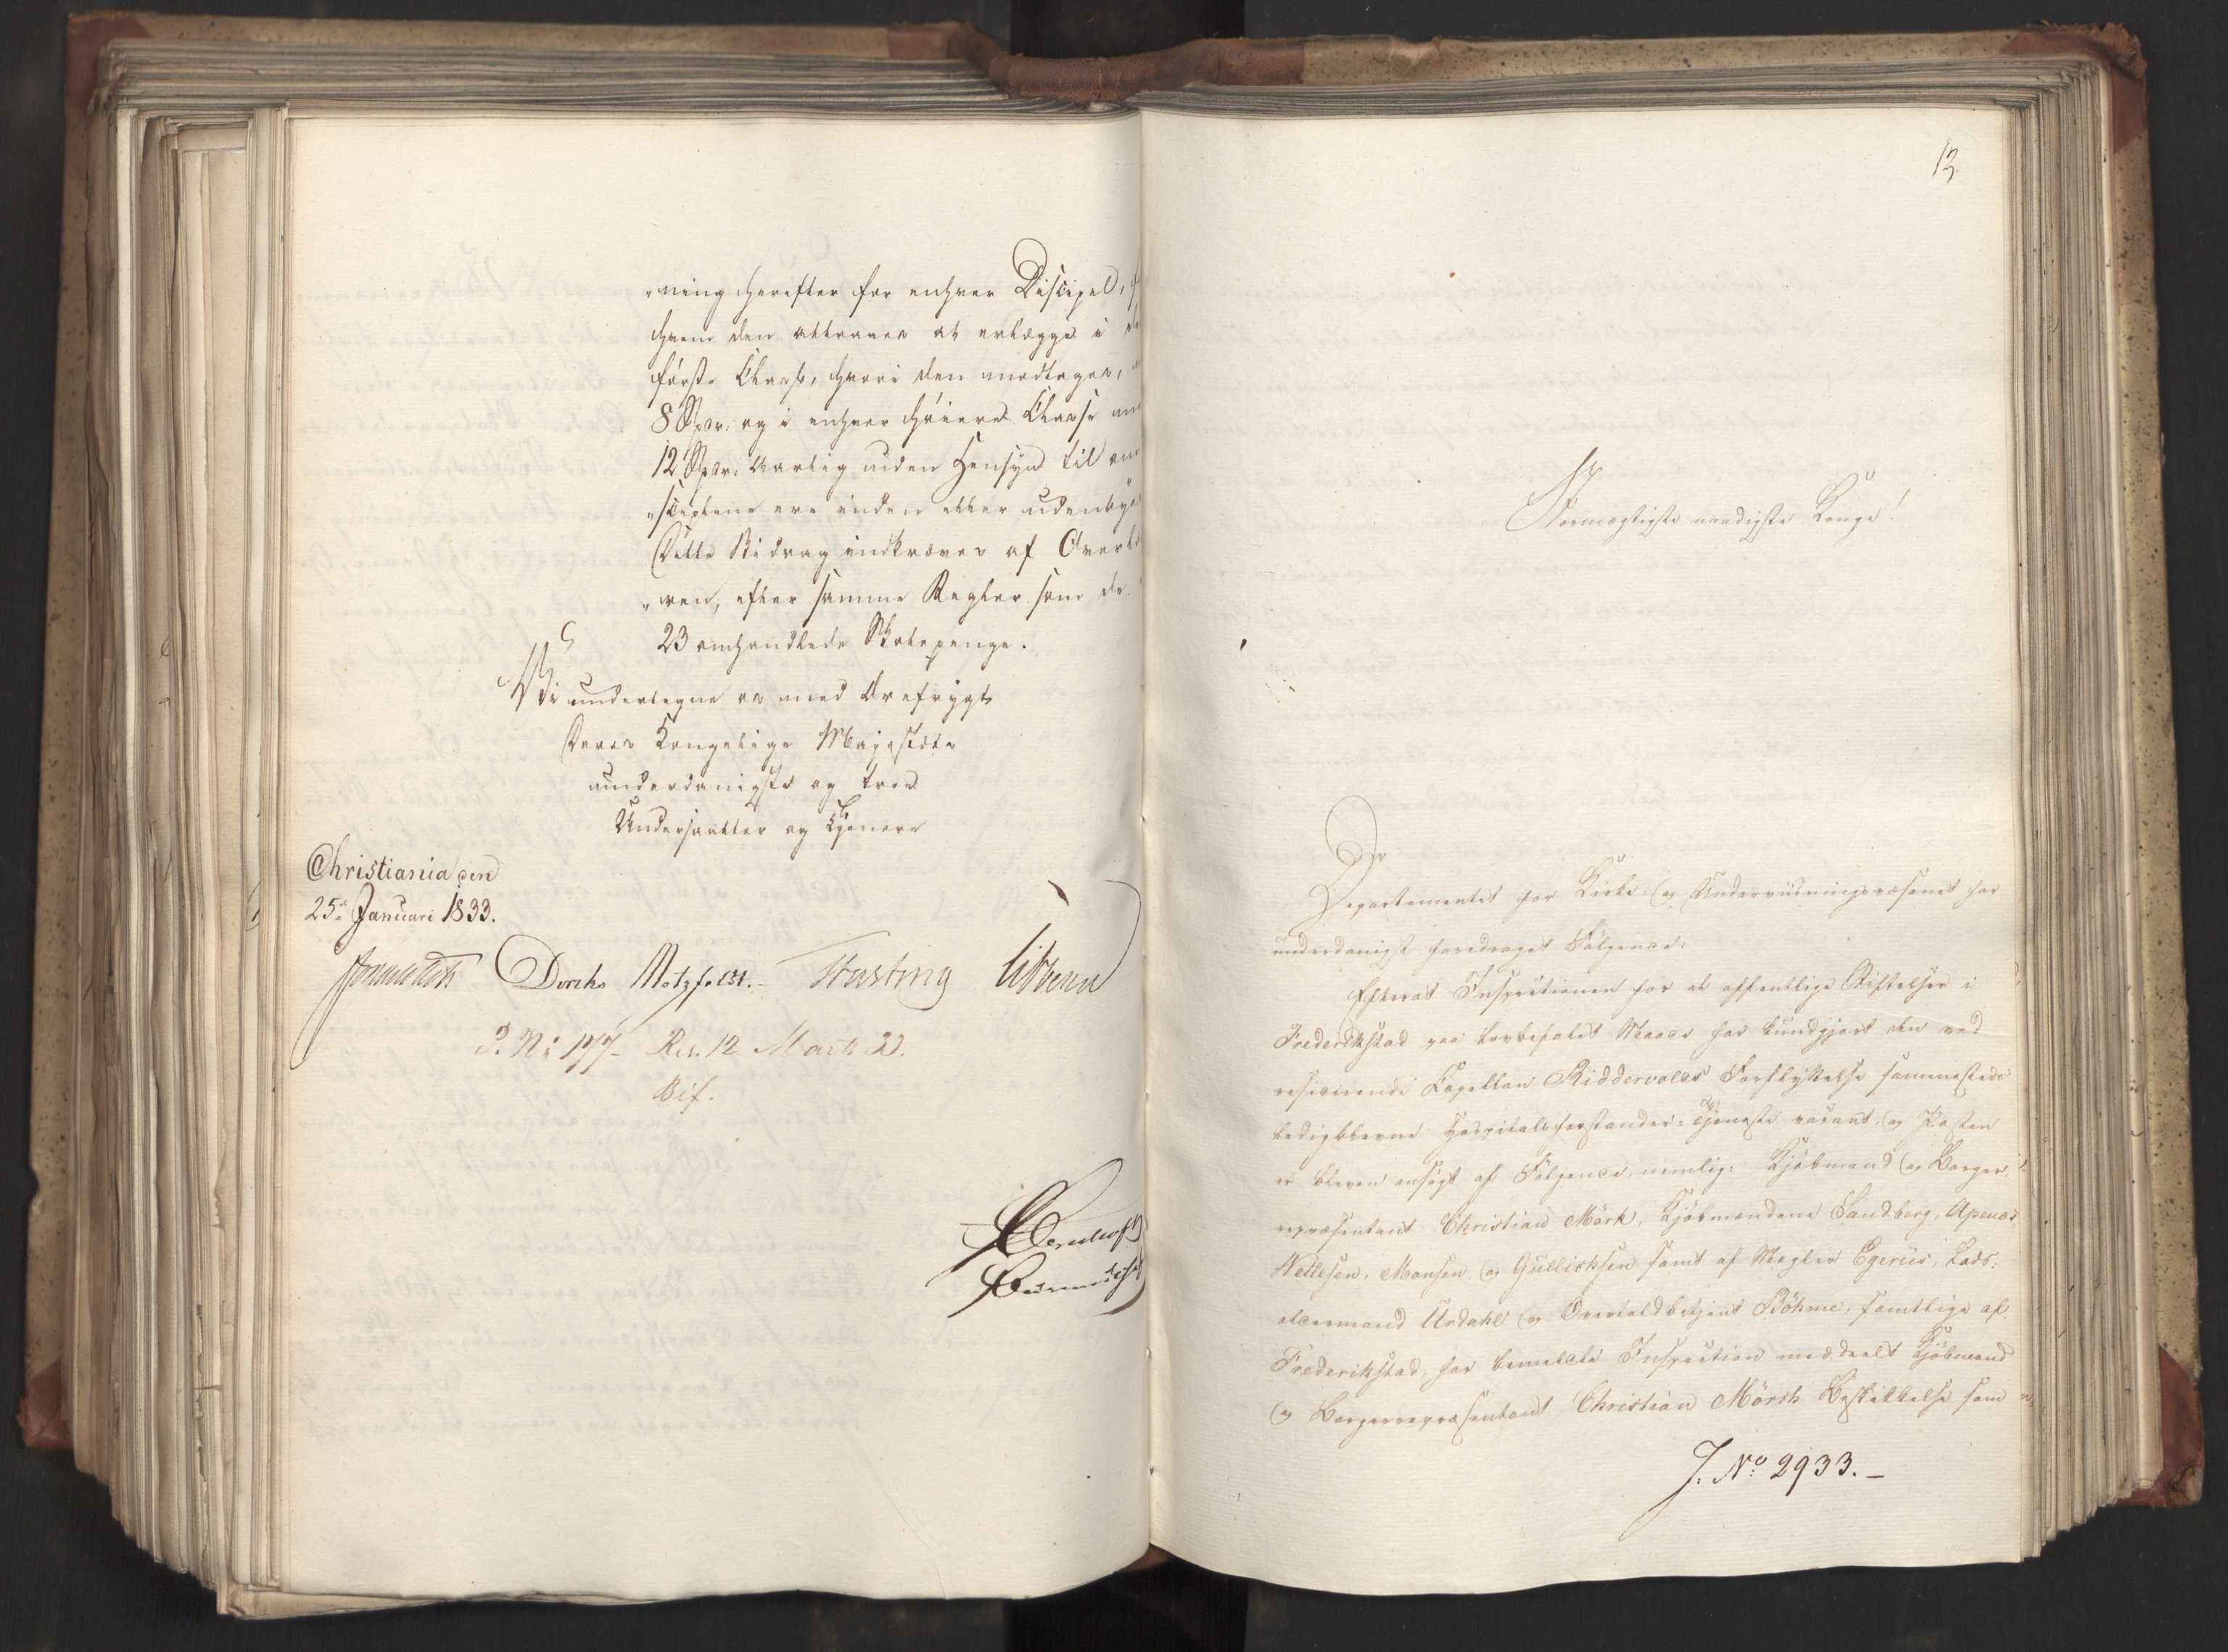 „ning herefter for enhver Discipel,
hvem den attraaes at erlægge i
første Classe, hvori den modtages,
8 Spdr. og i enhver høiere Classe
12 Spdr. aarlig uden Hensyn til om
„sciplene ere inden eller udenbyes
Dette Bidrag indkræves af Overlæ
„ren, efter samme Regler som de
23 omhandlede Skolepenge.
Vi undertegne os med Ærefrygt
Deres Kongelige Majestæts
underdanigste og troe
Undersaatter og Tjenere
Christiania den
25de Januari 1833.
Diriks Motzfeldt. Fasting
J. No 177 Res. 12 Marts 33.
Bif.
13.
Stormægtigste naadigste Konge!
Departementet for Kirke- og Underviisningsvæsenet har
underdanigst foredraget Følgende:
Efterat Inspectionen for de offentlige Stiftelser i
Frederikstad paa lovbefalet Maade har kundgjort den ved
residerende Capellan Riddervolds Forflyttelse sammesteds
ledigblevne Hospitalsforstander-Tjeneste vacant, og Posten
er bleven ansøgt af Følgende, nemlig: Kjøbmand og Borger-
repræsentant Christian Mörk, Kjøbmændene Sandberg, Apenæs,
Nellesen, Monsen og Gullichsen samt af Megler Egerius, Lods-
oldermand Urdahl og Overtoldbetjent Böhme, samtlige af
Frederikstad, har bemeldte Inspection meddeelt Kjøbmand
og Borgerrepræsentant Christian Mörch Beskikkelse som
J. No 2933.